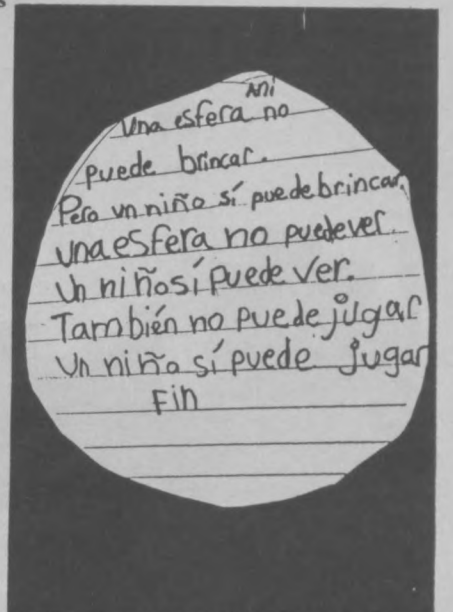 mi
Una esfera no
puede brincar.
Pero un niño sí puede brincar.
Una esfera no puede ver.
Un niño sí puede ver.
También no puede jugar
Un niño sí puede jugar
Fin